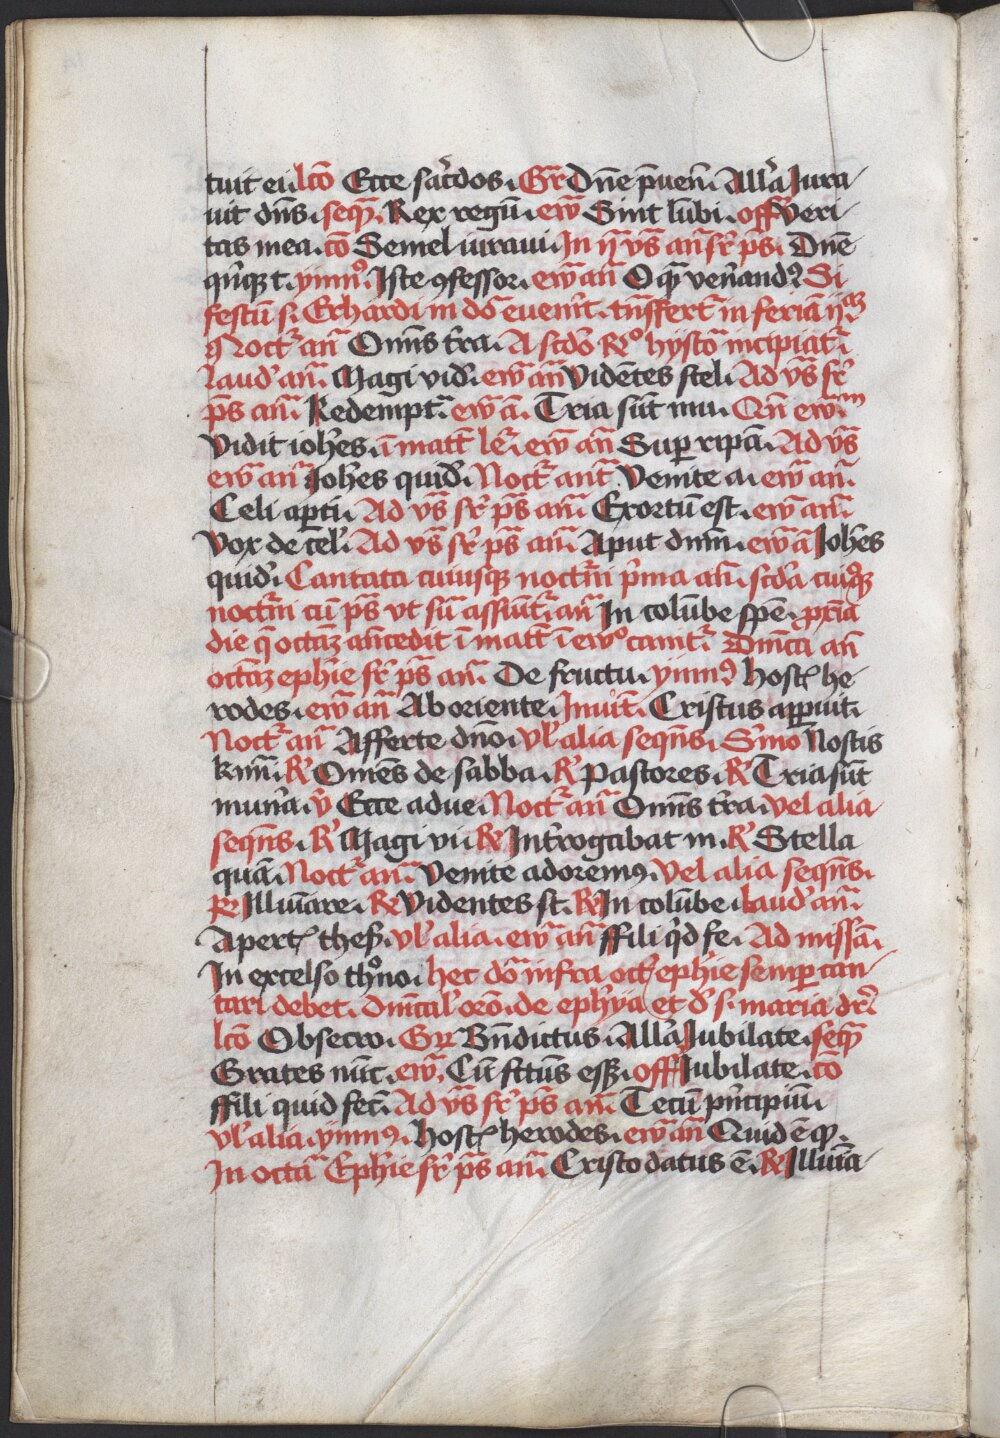 tuit ei. lc̄o Ecce sac̓dos. Gr̄ Dn̄e p̄uen̄. All̓a Jura
uit dn̄s. seq̄. Rex regū. ew̄ Sint lūbi. off Veri
tas mea. cō Semel iuraui. In ij v̄s an̄ sr̓ p̄s. Dn̄e
qn̓qꝫ t. ymn⁹. Iste ꝯfessor. ew̄ an̄ O q̄ ven̓and⁹. Si
festū s. Erhardi in dō euen̓it. tn̄sfert̄ in feriā ij
Noct̓ an̄ Om̄is t̓ra. A scdo R̓ hystō incipiat̓
laud̓ an̄. Magi vid̓. ew̄ an̄ Vidētes stel. Ad v̄s sr̓
p̄s an̄. Redempt̓. ew̄ ā. Tria sūt mu. Qn̄ ew̄m
Vidit ioh̓es. ī matt̄ le̓. ew̄ an̄ Sup ripā. Ad v̄s
ew̄ an̄ Joh̓es quid̓. Noct̓ ant̄ Venite a. ew̄ an̄.
Celi apti. Ad v̄s sr̓ p̄s an̄. Exortū est. ew̄ an̄.
Vox de cel̓. Ad v̄s sr̓ p̄s an̄. Aput dnm̄. ew̄ ā Joh̓es
quid̓. Cantata cuiusqꝫ noct̄ni p̓ma an̄. scd̓a cuiꝯqꝫ
noct̄ni cū p̄s vt sū assiūt̓. an̄ In colūbe spē. ꝓp̓ia
die q̄ octaꝫ an̄cedit ī matt̄ ī ew̓ cant̓. Dn̄ica an̄
octaꝫ eph̓ie sr̓ p̄s an̄. De fructu. ymn⁹ host̓ he
rodes. ew̄ an̄ Ab oriente. Inuit̄. Cristus apparuit.
Noct̓ an̄ Afferte dn̄o. vl̓ alia seqn̄s. S̓mo Nostis
k̄mi. R̓ Om̄es de sabba. R̓ Pastores. R̓ Tria sūt
mun̓a. v̓ Ecce adue. Noct̓ an̄ Om̄is t̓ra. vel alia
seqn̄s. R̓ Magi vii R̓ Int̓rogabat m. R̓ Stella
quā. Noct̓ an̄. Venite adorem⁹. Vel alia seqn̄s.
R̓ Illumare. R̓ Videntes st. R̓ In colūbe. laud̓ an̄.
Apert̓ thes̓. vl̓ alia. ew̄ an̄ ffili q̓d fe. Ad missā.
In excelso th̓no. hec dō infra oct̓ eph̓ie semp can
tari debet. Dn̄ical̓ oc̄o. de eph̓ya et d̓ s. maria dr̓.
lc̄o Obsecro. Gr̄ Bn̄dictus. All̓a Jubilate. seq̄
Grates nūc. ew̄. Cū fc̄us esꝫ. off Jubilate. cō
ffili quid fec̄. Ad v̄s sr̓ p̄s an̄. Tecū pn̓cipiū.
vl̓ alia. ymn⁹. host̓ herodes. ew̄ an̄ Quid ē q̄.
In octā Eph̓ie sr̓ p̄s an̄. Cristo datus ē. R̓ Illumā